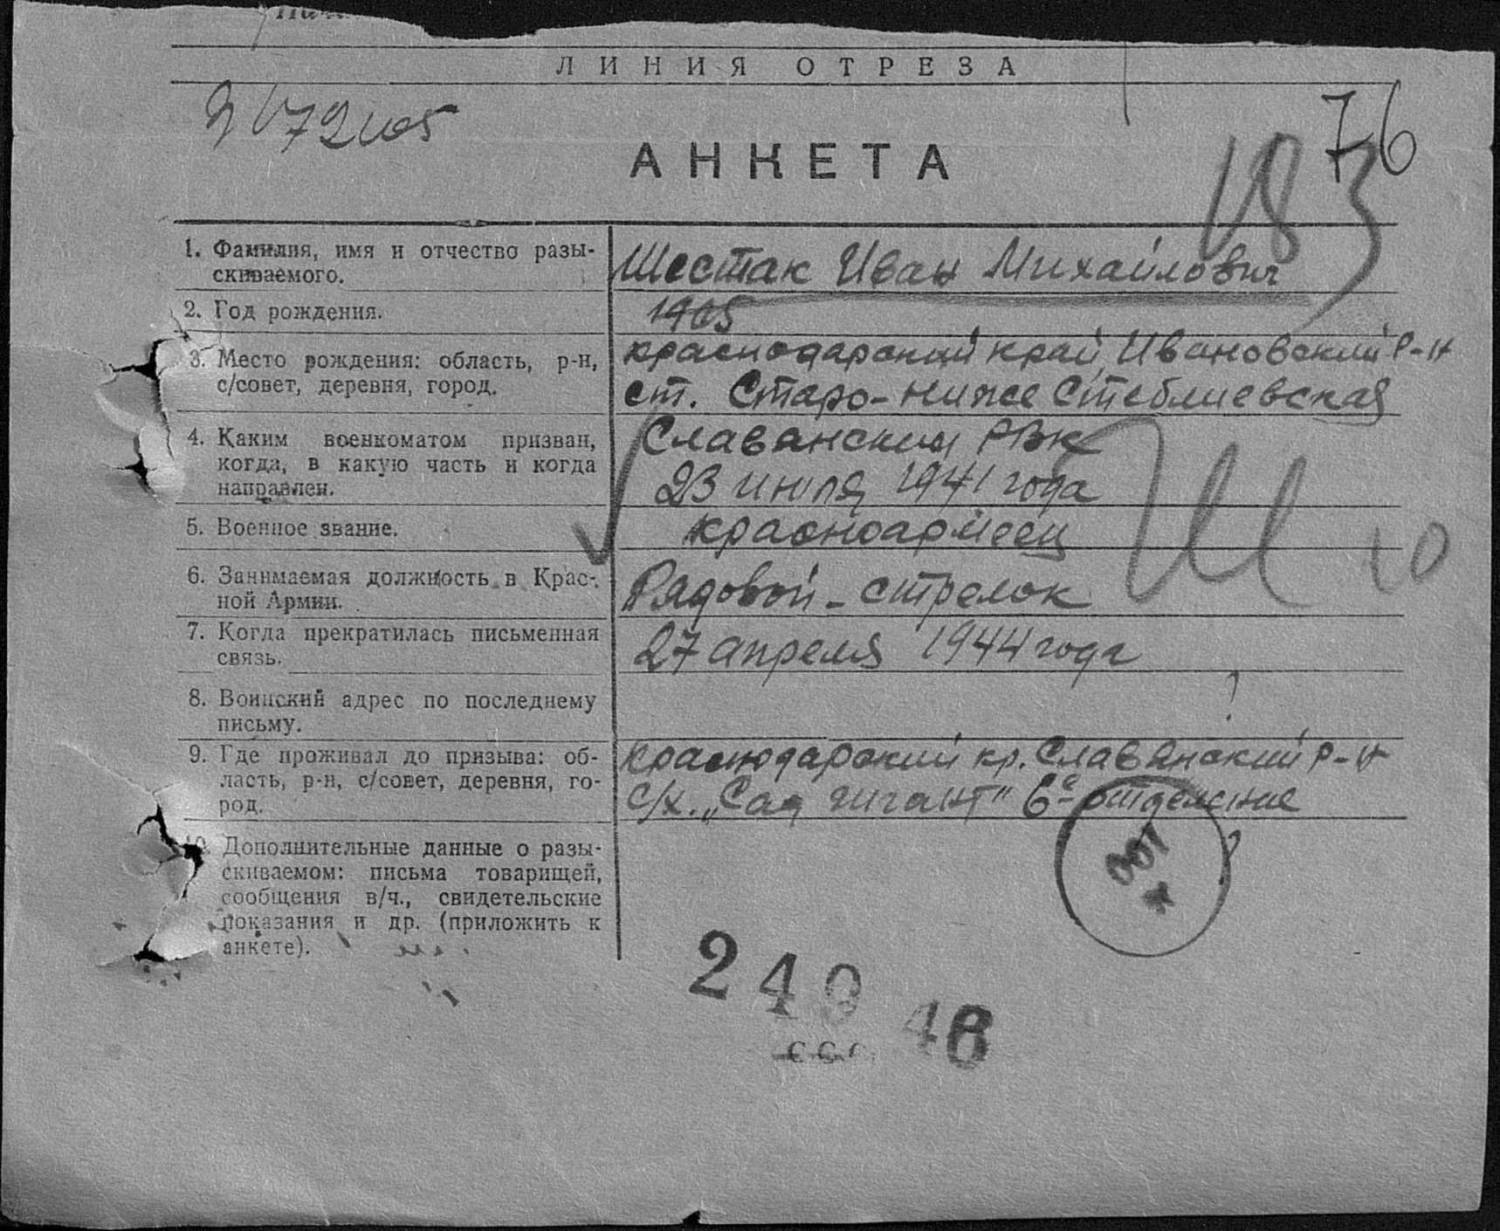 ЛИНИЯ ОТРЕЗА
76
183
АНКЕТА
1. Фамилия, имя и отчество разы-
скиваемого.
Шестак Иван Михайлович
2. Год рождения.
1905
3. Место рождения: область, р-н,
с/совет, деревня, город.
Краснодарский край, Ивановский р-н
ст. Старо-Нижестеблиевская
4. Каким военкоматом призван,
когда, в какую часть и когда
направлен.
Славянский РВК
23 июля 1941 года
5. Военное звание.
красноармеец
6. Занимаемая должность в Крас-
ной Армии.
Рядовой - стрелок
Ш 10
7. Когда прекратилась письменная
связь.
27 апреля 1944 года
8. Воинский адрес по последнему
письму.
?
9. Где проживал до призыва: об-
ласть, р-н, с/совет, деревня, го-
род.
Краснодарский кр. Славянский р-н
с/х. „Сад гигант" 6е отделение
10. Дополнительные данные о разы-
скиваемом: письма товарищей,
сообщения в/ч., свидетельские
показания и др. (приложить к
анкете).
?
007
*
249 46